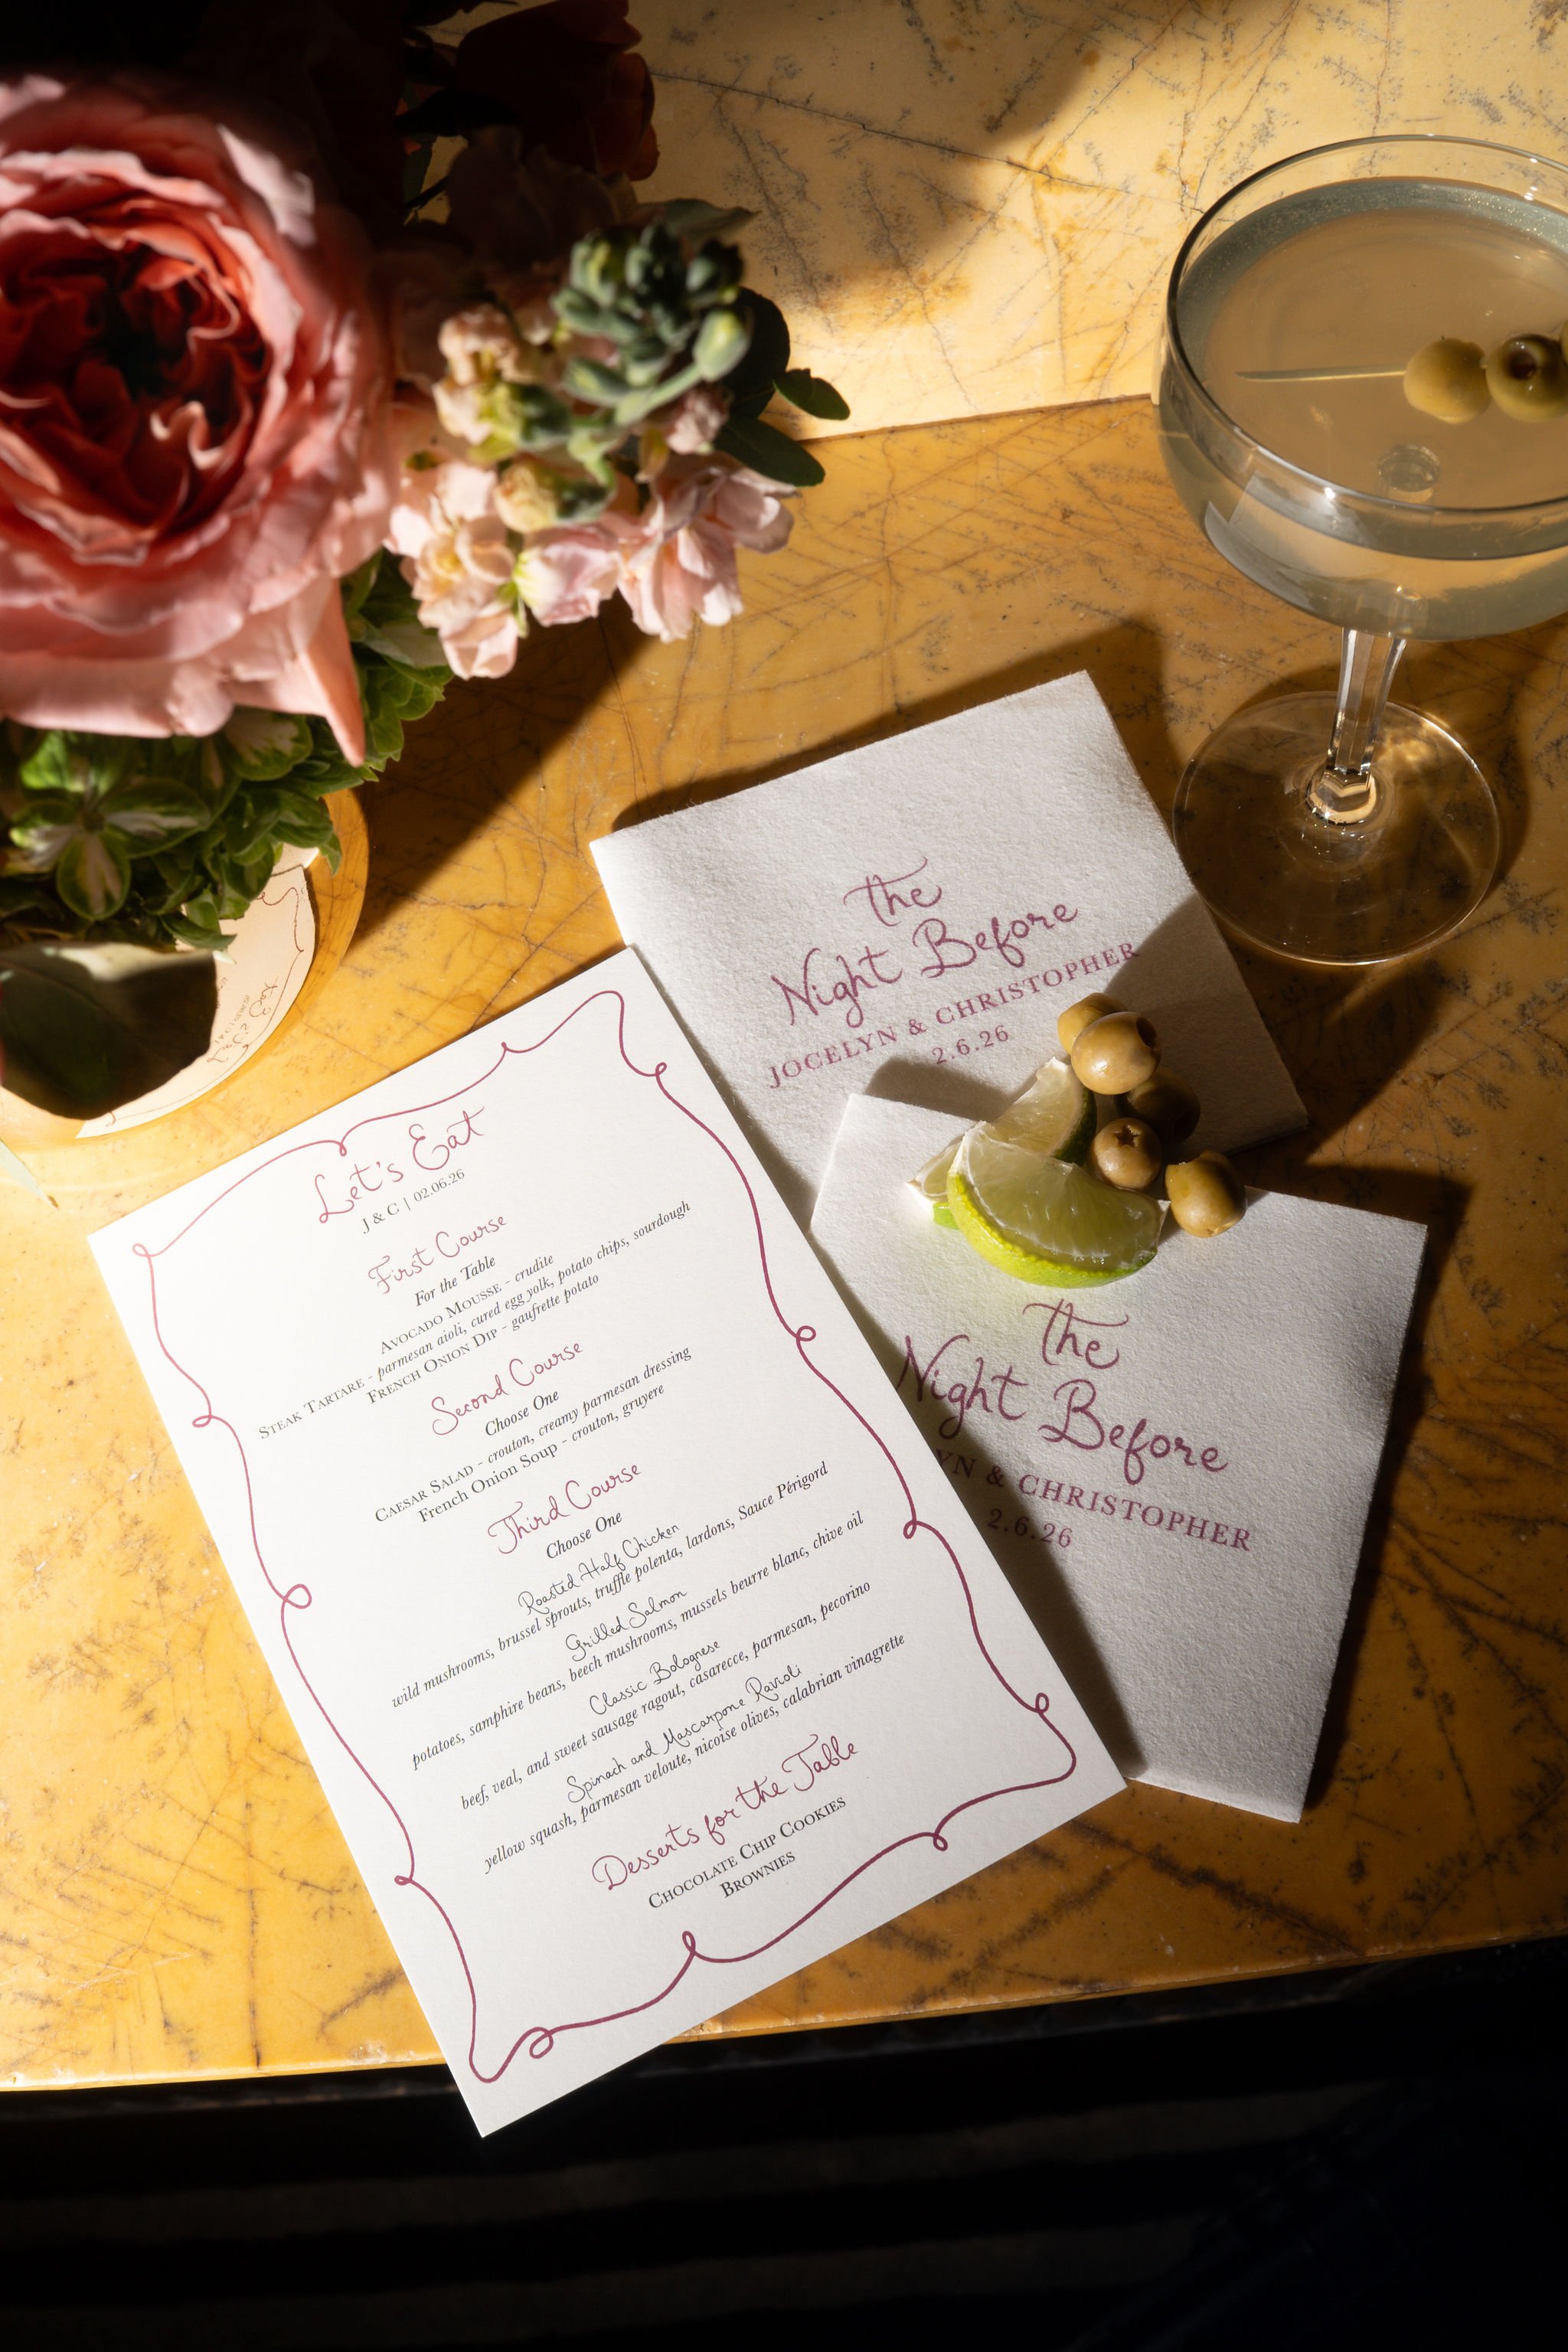 the
Night Before
JOCELYN & CHRISTOPHER
2.6.26
Let's Eat
J & C | 02.06.26
First Course
For the Table
AVOCADO MOUSSE - crudite
STEAK TARTARE - parmesan aioli, cured egg yolk, potato chips, sourdough
FRENCH ONION DIP - gaufrette potato
Second Course
Choose One
CAESAR SALAD - crouton, creamy parmesan dressing
French Onion Soup - crouton, gruyere
Third Course
Choose One
Roasted Half Chicken
wild mushrooms, brussel sprouts, truffle polenta, lardons, Sauce Périgord
Grilled Salmon
potatoes, samphire beans, beech mushrooms, mussels beurre blanc, chive oil
Classic Bolognese
beef, veal, and sweet sausage ragout, casarecce, parmesan, pecorino
Spinach and Mascarpone Ravioli
yellow squash, parmesan veloute, nicoise olives, calabrian vinagrette
Desserts for the Table
CHOCOLATE CHIP COOKIES
BROWNIES
the
Night Before
YN & CHRISTOPHER
2.6.26